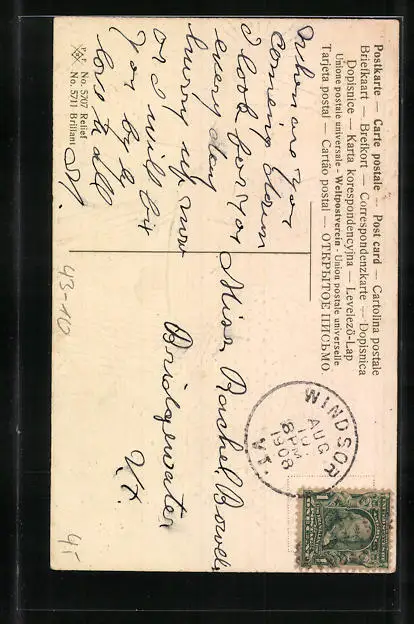 Postkarte — Carte postale — Post card — Cartolina postale
Briefkaart — Brefkort — Correspondenzkarte — Dopisnica
Dopisnice — Karta korespondencyjna — Levelező-Lap
Unione postale universale - Weltpostverein - Union postale universelle
Tarjeta postal — Cartão postal — ОТКРЫТОЕ ПИСЬМО
When are you
coming down
I look for you
every day
hurry up now
or I will bit
you by &
love to all
P.F. No. 5707 Relief
No. 5711 Brillant
Miss Rachel Bowels
Bridgewater
Vt.
WINDSOR
AUG
10
8 PM
1908
VT.
43-10
45